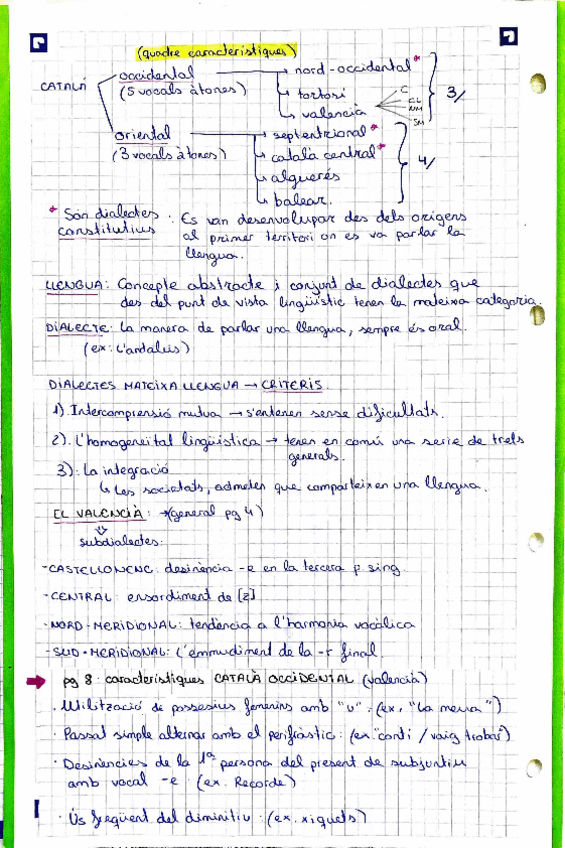 (quadre característiques)
CATALÀ
occidental
(5 vocals àtones)
nord-occidental*
tortosí
valencià
C
CL
NM
SM
3/
oriental
(3 vocals àtones)
septentrional*
català central*
alguerés
balear.
4/
* Són dialectes constitutius : Es van desenvolupar des dels orígens
al primer territori on es va parlar la
llengua.
LLENGUA: Concepte abstracte i conjunt de dialectes que
des del punt de vista lingüístic tenen la mateixa categoria.
DIALECTE: La manera de parlar una llengua, sempre és oral.
(ex: L'andalús)
DIALECTES MATEIXA LLENGUA → CRITERIS.
1). Intercomprensió mutua → s'entenen sense dificultats.
2). L'homogeneïtat lingüística → tenen en comú una serie de trets
generals.
3): La integració
↳ Les societats, admeten que comparteixen una llengua.
EL VALENCIÀ: → (general pg 4)
subdialectes:
-CASTELLONENC: desinència -e en la tercera p sing.
-CENTRAL: ensordiment de [z]
-NORD-MERIDIONAL: tendència a l'harmonia vocàlica
-SUD-MERIDIONAL: L'emmudiment de la -r final.
→ pg 8: característiques CATALÀ OCCIDENTAL (valencià)
· Utilització de possesius femenins amb "u": (ex. "La meua")
· Passat simple alternar amb el perifràstic: (ex. "contí / vaig trobar")
· Desinències de la 1ª persona del present de subjuntiu
amb vocal -e : (ex. Recorde)
· Ús freqüent del diminitiu : (ex. xiquets)